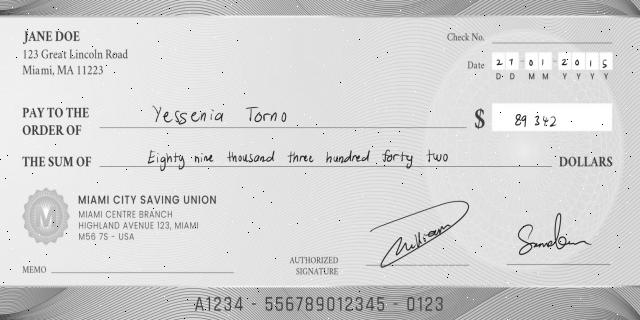 JANE DOE
123 Great Lincoln Road
Miami, MA 11223
Check No.
Date 27-01-2015
D D M M Y Y Y Y
PAY TO THE ORDER OF Yessenia Torno $ 89 342
THE SUM OF Eighty nine thousand three hundred forty two DOLLARS
M
MIAMI CITY SAVING UNION
MIAMI CENTRE BRANCH
HIGHLAND AVENUE 123, MIAMI
M56 7S - USA
MEMO
AUTHORIZED
SIGNATURE
William
A1234 - 556789012345 - 0123